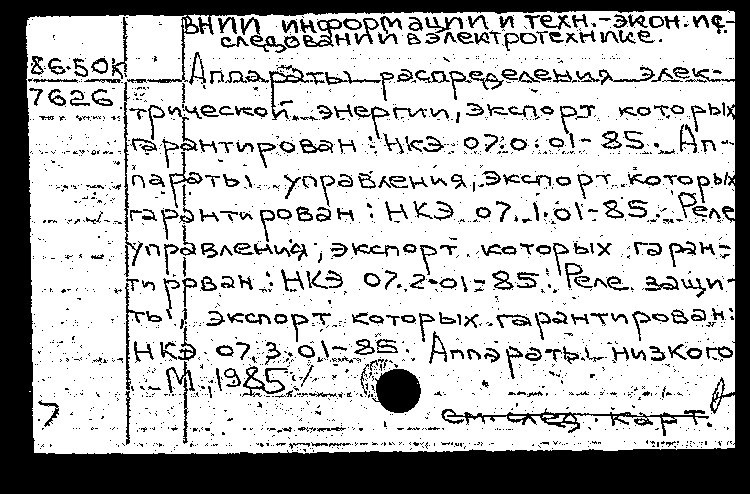 ВНИИ информации и техн.-экон. ис-
следований в электротехнике.
86.50К Аппараты распределения элек-
7626 трической энергии, экспорт которых
гарантирован: НКЭ 07.0.01-85. Ап-
параты управления, экспорт которых
гарантирован: НКЭ 07.1.01-85. Реле
управления, экспорт которых гаран-
тирован: НКЭ 07.2.01-85. Реле защи-
ты, экспорт которых гарантирован:
НКЭ 07.3.01-85. Аппараты низкого
М., 1985.
7 см. след. карт.